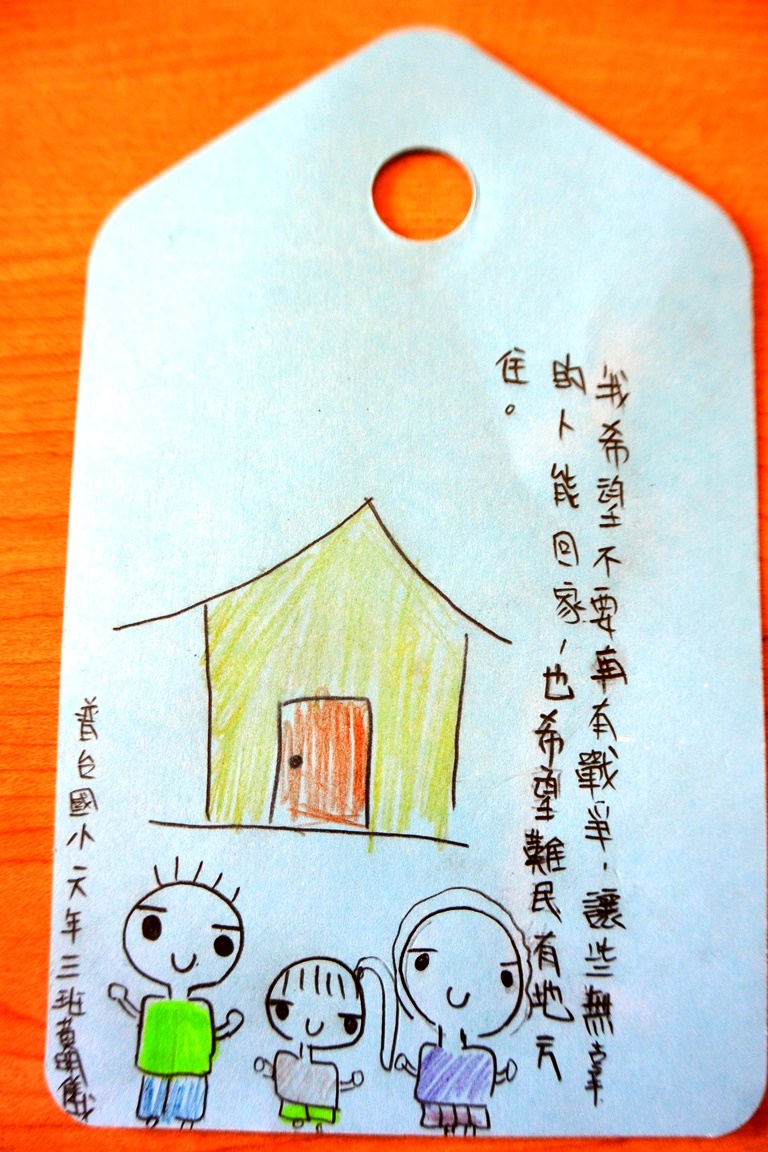 我希望不要再有戰爭，讓些無辜
的人能回家，也希望難民有地方
住。
普台國小六年三班